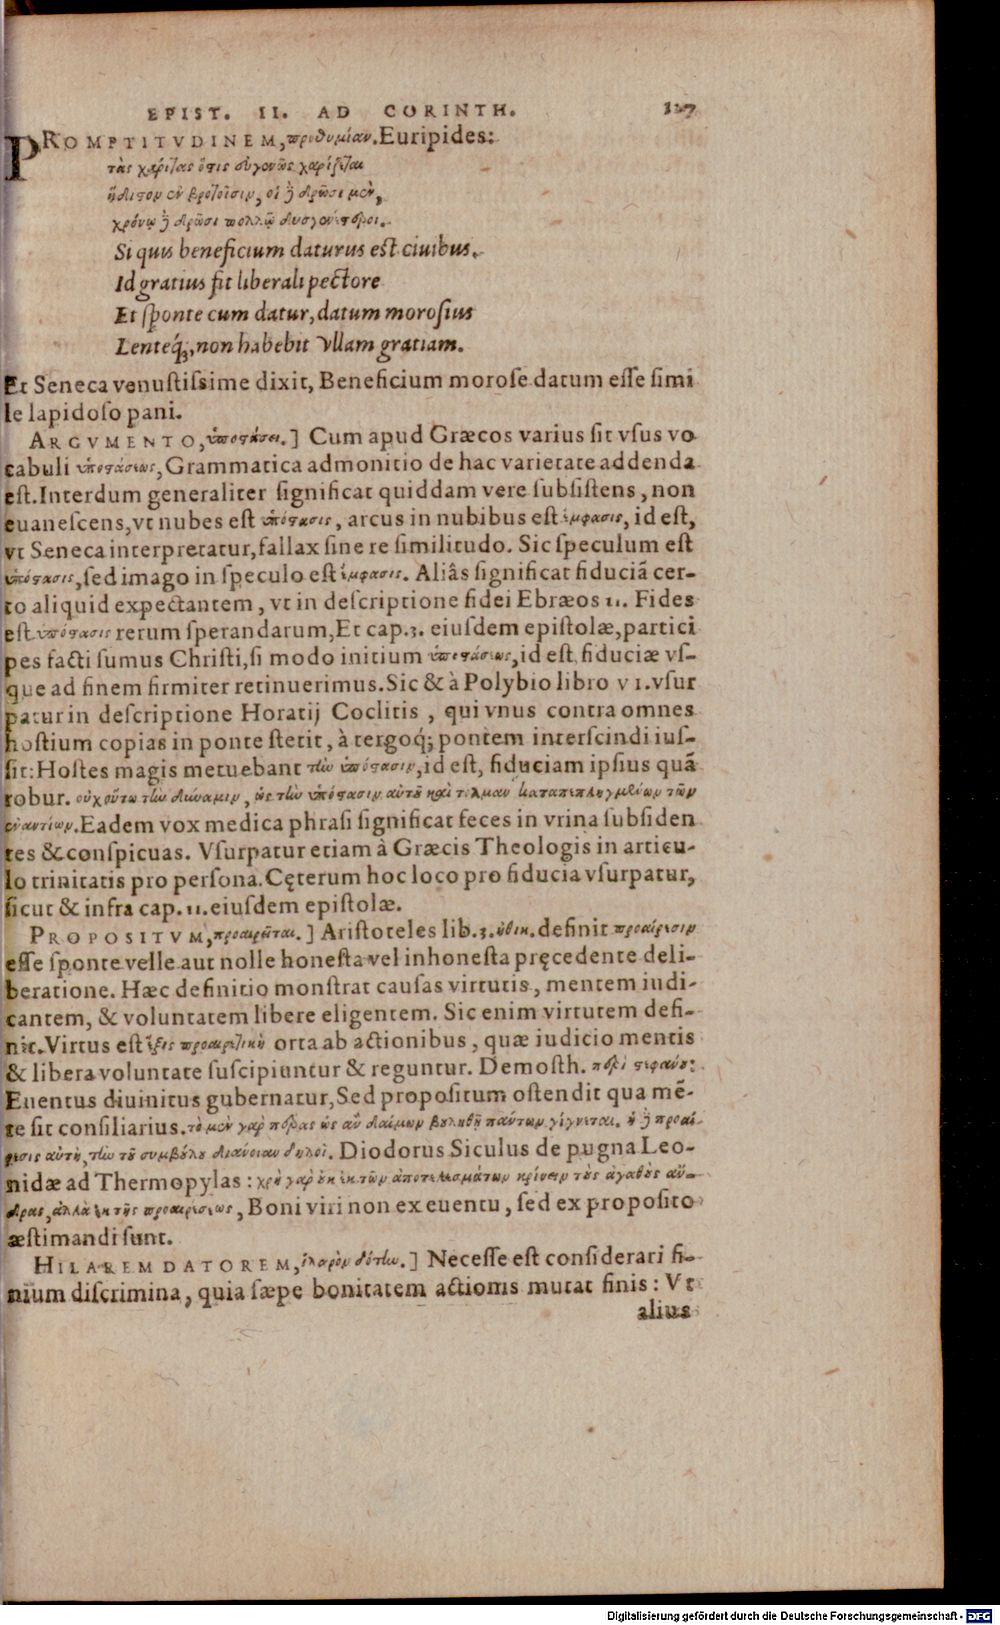 EPIST. II. AD CORINTH. 127
PROMPTITVDINEM, προθυμίαν. Euripides:
τὰς χάριτας ὅστις εὐγενῶς χαρίζεται
ἥδιστον ἐν βροτοῖσιν, οἳ δὲ δρῶσι μὲν,
χρόνῳ δὲ δρῶσι πολλῷ δυσγενέστεροι.
Si quis beneficium daturus est ciuibus,
Id gratius fit liberali pectore
Et sponte cum datur, datum morosius
Lenteq;, non habebit vllam gratiam.
Et Seneca venustissime dixit, Beneficium morose datum esse simi
le lapidoso pani.
ARGVMENTO, ὑποστάσει.] Cum apud Græcos varius sit vsus vo
cabuli ὑποστάσεως, Grammatica admonitio de hac varietate addenda
est. Interdum generaliter significat quiddam vere subsistens, non
euanescens, vt nubes est ὑπόστασις, arcus in nubibus est ἔμφασις, id est,
vt Seneca interpretatur, fallax sine re similitudo. Sic speculum est
ὑπόστασις, sed imago in speculo est ἔμφασις. Aliâs significat fiduciã cer-
to aliquid expectantem, vt in descriptione fidei Ebræos 11. Fides
est ὑπόστασις rerum sperandarum, Et cap. 3. eiusdem epistolæ, partici
pes facti sumus Christi, si modo initium ὑποστάσεως, id est, fiduciæ vs-
que ad finem firmiter retinuerimus. Sic & à Polybio libro VI. vsur
patur in descriptione Horatij Coclitis, qui vnus contra omnes
hostium copias in ponte stetit, à tergoq; pontem interscindi ius-
sit: Hostes magis metuebant τὴν ὑπόστασιν, id est, fiduciam ipsius quã
robur. οὐχ οὕτω τὴν δύναμιν, ὡς τὴν ὑπόστασιν αὐτοῦ καὶ τόλμαν καταπεπληγμένων τῶν
ἐναντίων. Eadem vox medica phrasi significat feces in vrina subsiden
tes & conspicuas. Vsurpatur etiam à Græcis Theologis in articu-
lo trinitatis pro persona. Cęterum hoc loco pro fiducia vsurpatur,
sicut & infra cap. 11. eiusdem epistolæ.
PROPOSITVM, προαιρεῖται.] Aristoteles lib. 3. ἠθικ. definit προαίρεσιν
esse sponte velle aut nolle honesta vel inhonesta pręcedente deli-
beratione. Hæc definitio monstrat causas virtutis, mentem iudi-
cantem, & voluntatem libere eligentem. Sic enim virtutem defi-
nit. Virtus est ἕξις προαιρετικὴ orta ab actionibus, quæ iudicio mentis
& libera voluntate suscipiuntur & reguntur. Demosth. περὶ στεφάνου:
Euentus diuinitus gubernatur, Sed propositum ostendit qua mẽ-
te sit consiliarius. τὸ μὲν γὰρ πέρας ὡς ἂν δαίμων βουληθῇ πάντων γίγνεται. ἡ δὲ προαί
ρεσις αὐτὴ, τὴν τοῦ συμβούλου διάνοιαν δηλοῖ. Diodorus Siculus de pugna Leo-
nidæ ad Thermopylas: χρὴ γὰρ οὐκ ἐκ τῶν ἀποτελεσμάτων κρίνειν τοὺς ἀγαθοὺς ἄν-
δρας, ἀλλὰ ἐκ τῆς προαιρέσεως, Boni viri non ex euentu, sed ex proposito
æstimandi sunt.
HILAREM DATOREM, ἱλαρὸν δότην.] Necesse est considerari fi-
nium discrimina, quia sæpe bonitatem actionis mutat finis: Vt
alius
Digitalisierung gefördert durch die Deutsche Forschungsgemeinschaft - DFG